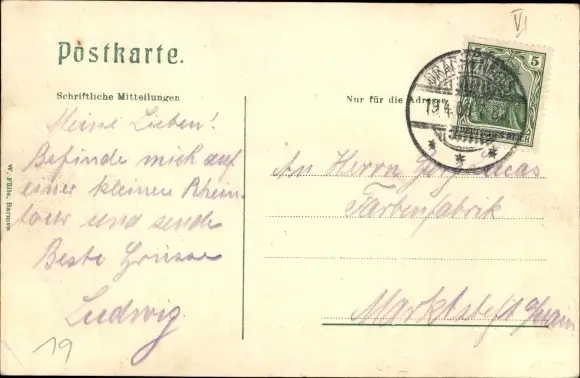 VI
Postkarte.
5
DEUTSCHES REICH
Schriftliche Mitteilungen
Nur für die Adresse
19.4.
Meine Lieben!
Befinde mich auf
einer kleinen Rhein-
tour und sende
Beste Grüsse
Ludwig
An Herrn
Farbenfabrik
Marktsteft a/Main
W. Fülle, Barmen
19